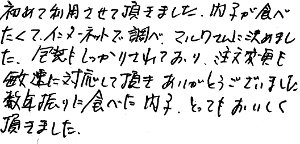 初めて利用させて頂きました。内子が食べ
たくて、インターネットで調べ、マルワさんに決めまし
た。包装もしっかりされており、注文変更も
敏速に対応して頂き ありがとうございました
数年振りに食べた 内子、とってもおいしく
頂きました。